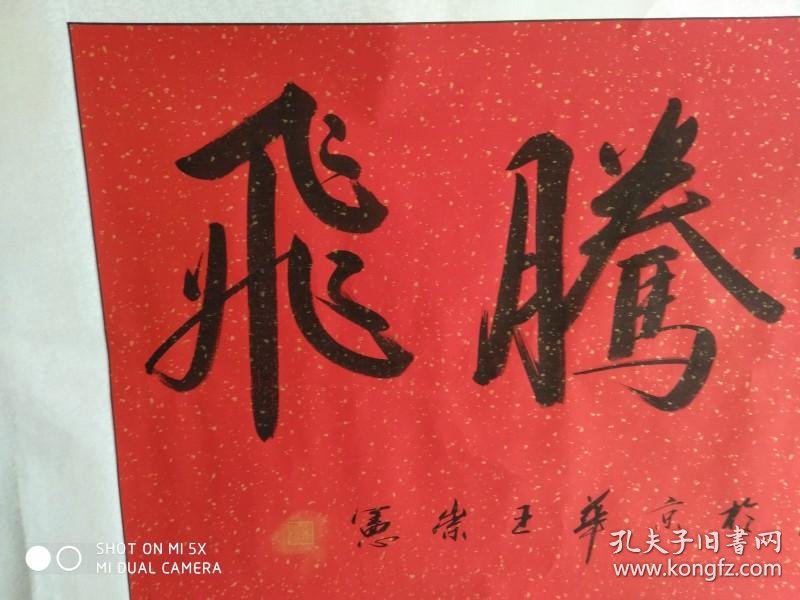 騰飛
於京華王崇憲
SHOT ON MI 5X
MI DUAL CAMERA
孔夫子旧书网
www.kongfz.com